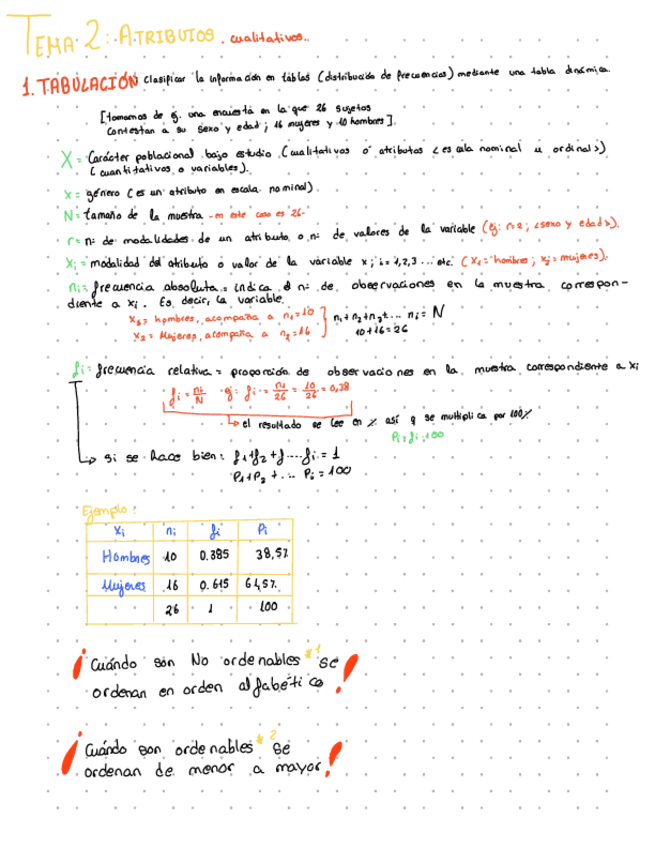 TEMA 2: ATRIBUTOS. cualitativos..
1. TABULACIÓN clasificar la información en tablas (distribución de frecuencias) mediante una tabla dinámica.
[tomamos de ej. una encuesta en la que 26 sujetos
contestan a su sexo y edad; 16 mujeres y 10 hombres].
X = Carácter poblacional bajo estudio (cualitativos ó atributos <escala nominal u ordinal>)
(cuantitativos o variables).
x = género (es un atributo en escala nominal).
N = tamaño de la muestra - en este caso es 26-
r = nº de modalidades de un atributo o nº de valores de la variable (ej: r=2; <sexo y edad>).
Xi = modalidad del atributo o valor de la variable x; i = 1,2,3 ... etc. (X1 = hombres; x2 = mujeres).
ni = frecuencia absoluta = indica el nº de observaciones en la muestra correspon-
diente a xi. Es decir, la variable
x1 = hombres, acompaña a n1 = 10
x2 = Mujeres, acompaña a n2 = 16
n1 + n2 + n3 + ... ni = N
10 + 16 = 26
fi = frecuencia relativa = proporción de observaciones en la muestra correspondiente a xi
fi = ni/N ej: fi = n1/26 = 10/26 = 0,38
el resultado se lee en % así q se multiplica por 100%
Pi = fi·100
si se hace bien: f1 + f2 + f ... fi = 1
P1 + P2 + ... Pi = 100
Ejemplo:
Xi ni fi Pi
Hombres 10 0.385 38,5%
Mujeres 16 0.615 61,5%
26 1 100
¡Cuándo són No ordenables *1 se
ordenan en orden alfabético!
¡Cuándo son ordenables *2 se
ordenan de menor a mayor!